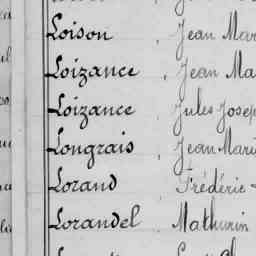 Loison, Jean Mar
Loizance, Jean Ma
Loizance, Jules Josep
Longrais, Jean Mari
Lorand Frédéric
Lorandel, Mathurin